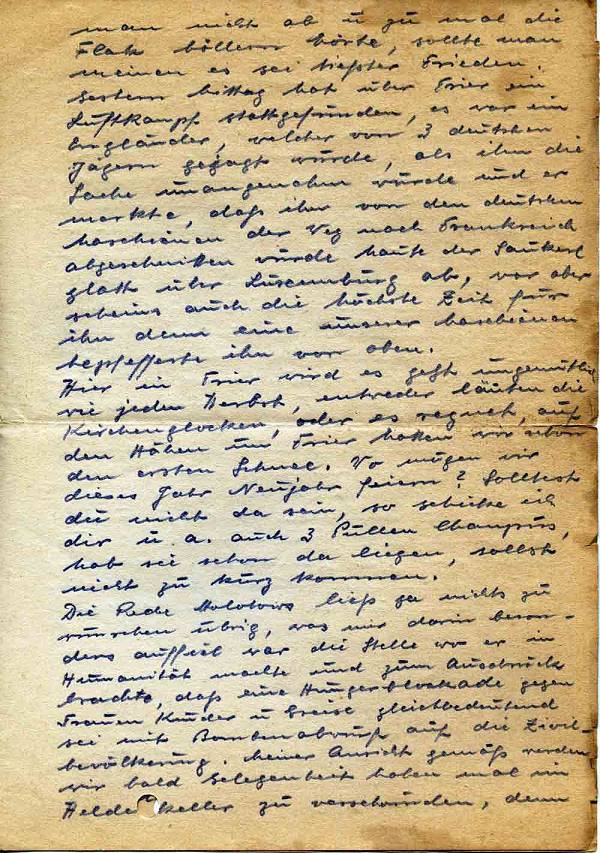 man nicht ab u zu mal die
Flak böllern hörte, sollte man
meinen es sei tiefster Frieden.
Gestern Mittag hat über Trier ein
Luftkampf stattgefunden, es war ein
Engländer, welcher von 3 deutschen
Jägern gejagt wurde, als ihm die
Sache unangenehm wurde und er
merkte, daß ihm von den deutschen
Maschienen der Weg nach Frankreich
abgeschnitten wurde haute der Saukerl
glatt über Luxemburg ab, war aber
scheins auch die höchste Zeit für
ihn denn eine unserer Maschienen
bepfefferte ihn von oben.
Hier in Trier wird es jetzt ungemütlich
wie jeden Herbst, entweder läuten die
Kirchenglocken, oder es regnet, auf
den Höhen um Trier hatten wir schon
den ersten Schnee. Wo mögen wir
dieses Jahr Neujahr feiern? Solltest
du nicht da sein, so schicke ich
dir u. a. auch 3 Pullen Champus,
hab sie schon da liegen, sollst
nicht zu kurz kommen.
Die Rede Molotows ließ ja nichts zu
wünschen übrig, was mir darin beson-
ders auffiel war die Stelle wo er in
Humanität machte und zum Ausdruck
brachte, daß eine Hungerblockade gegen
Frauen Kinder u Greise gleichbedeutend
sei mit Bombenabwurf auf die Zivil-
bevölkerung. Meiner Ansicht gemäß werden
wir bald Gelegenheit haben mal im
keller zu verschwinden, denn